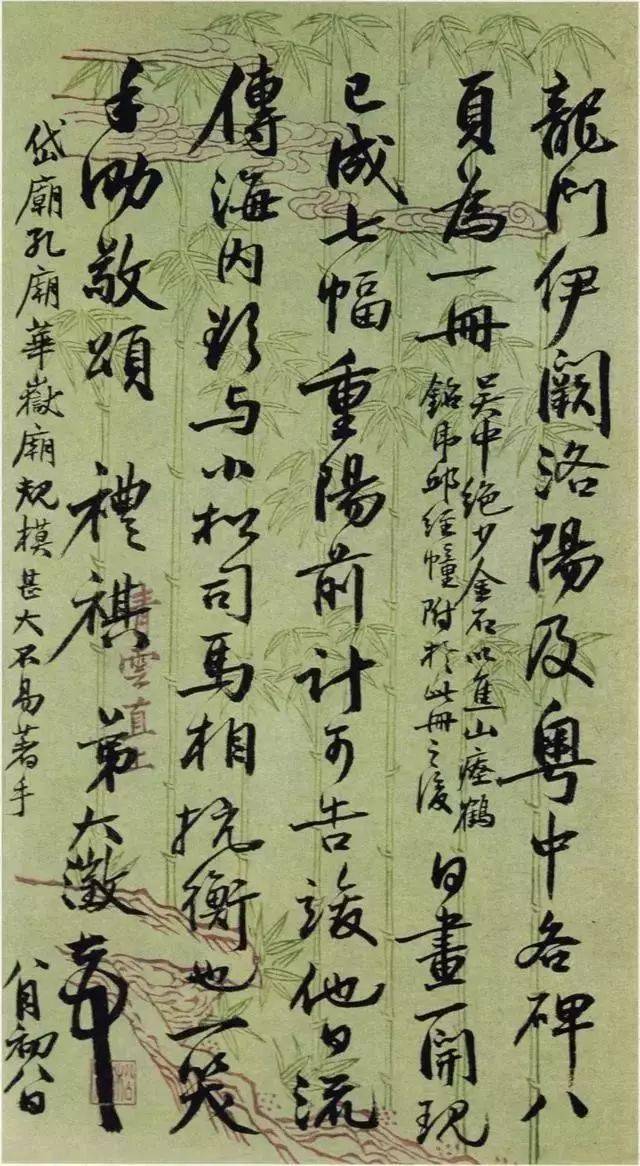 龍門伊闕洛陽及粵中各碑八
頁為一冊
吳中絕少金石以焦山瘞鶴
銘虎邱經幢附於此冊之後
日畫一開現
已成七幅重陽前計可告竣他日流
傳海內欲与小松司馬相抗衡也一笑
手泐敬頌
禮祺
弟大澂頓首
八月初八日
岱廟孔廟華嶽廟規模甚大不易著手
青雲直上